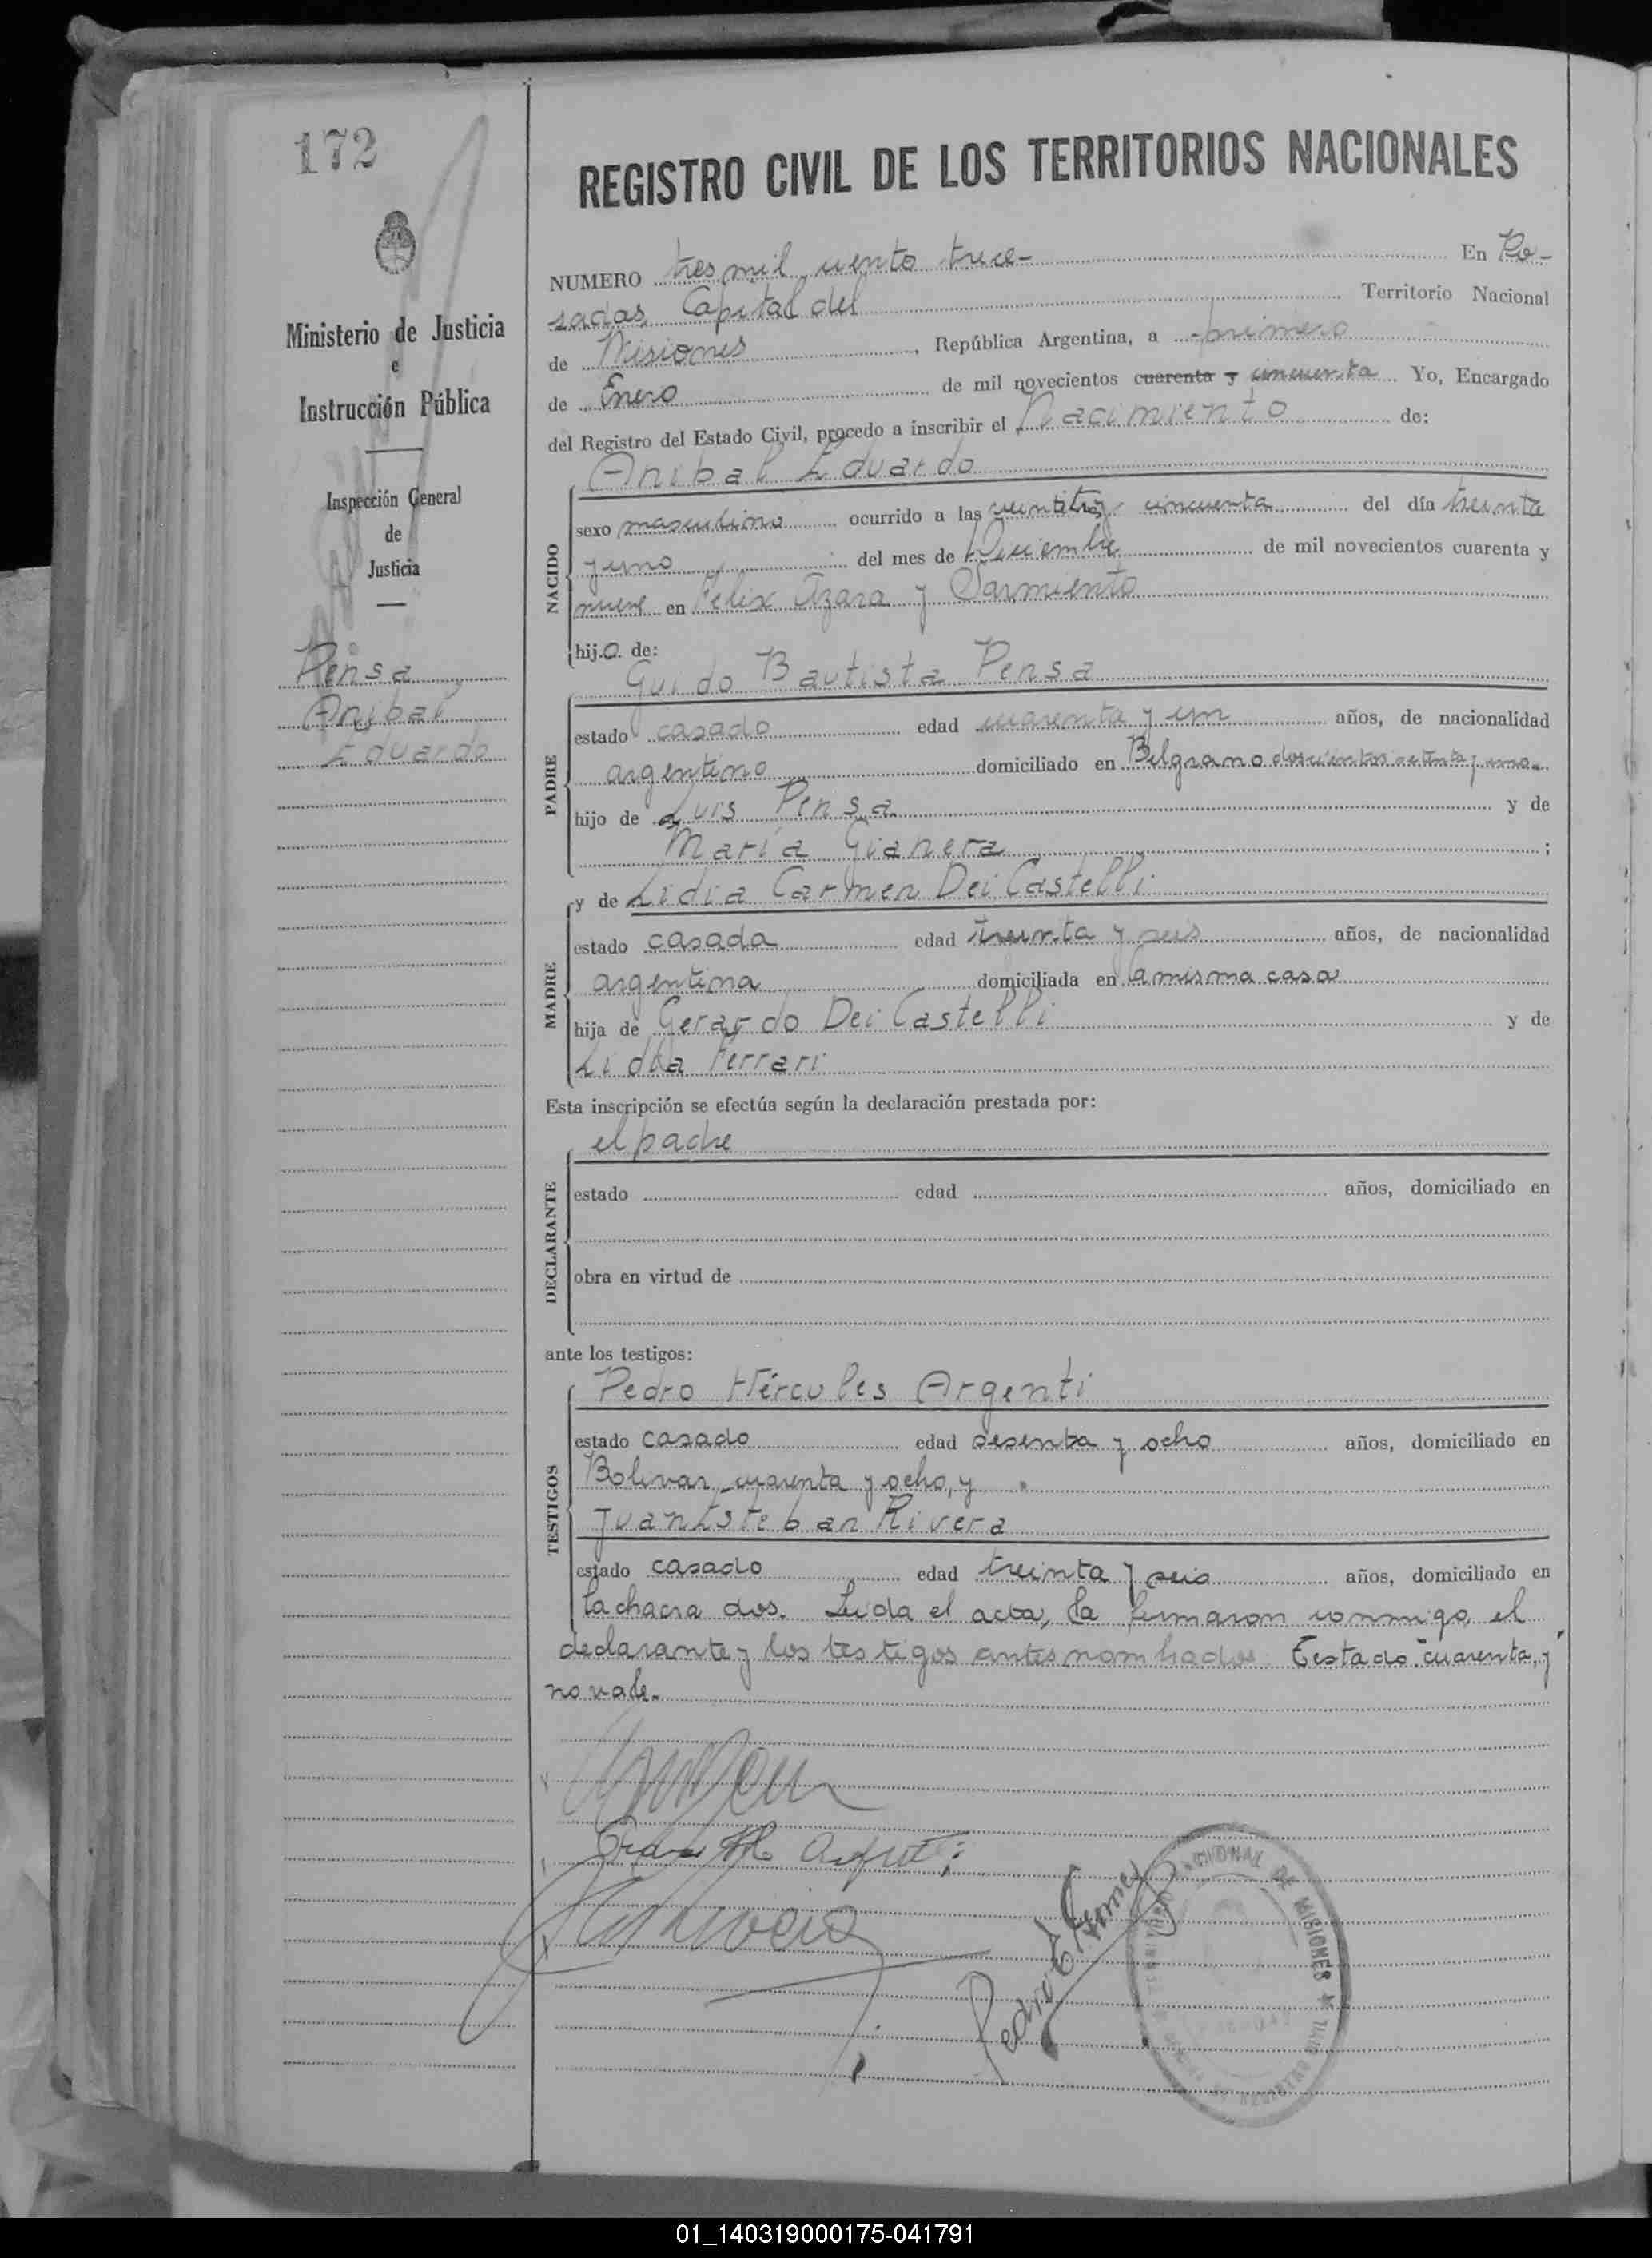 172
REGISTRO CIVIL DE LOS TERRITORIOS NACIONALES
Ministerio de Justicia
e
Instrucción Pública
Inspección General
de
Justicia
Pensa
Anibal
Eduardo
NUMERO tres mil ciento trece- En Po-
sadas, Capital del Territorio Nacional
de Misiones, República Argentina, a primero
de Enero de mil novecientos cuarenta y cincuenta Yo, Encargado
del Registro del Estado Civil, procedo a inscribir el Nacimiento de:
Anibal Eduardo
NACIDO
sexo masculino ocurrido a las veintitres cincuenta del día treinta
y uno del mes de Diciembre de mil novecientos cuarenta y
nueve en Félix Azara y Sarmiento
hijo de:
Guido Bautista Pensa
PADRE
estado casado edad cuarenta y un años, de nacionalidad
argentino domiciliado en Belgrano doscientos setenta y uno.
hijo de Luis Pensa y de
María Gianera ;
y de Lidia Carmen Dei Castelli
MADRE
estado casada edad treinta y seis años, de nacionalidad
argentina domiciliada en la misma casa
hija de Gerardo Dei Castelli y de
Lidia Ferrari
Esta inscripción se efectúa según la declaración prestada por:
el padre
DECLARANTE
estado edad años, domiciliado en
obra en virtud de
ante los testigos:
Pedro Hércules Argenti
TESTIGOS
estado casado edad sesenta y ocho años, domiciliado en
Bolivar cuarenta y ocho, y
Juan Esteban Rivera
estado casado edad treinta y seis años, domiciliado en
la chacra dos. Leida el acta, la firmaron conmigo, el
declarante y los testigos antes nombrados. Testado "cuarenta, y"
no vale.
Pedro E. Gomez
NACIONAL DE MISIONES ★
REGISTRO CIVIL
01_140319000175-041791